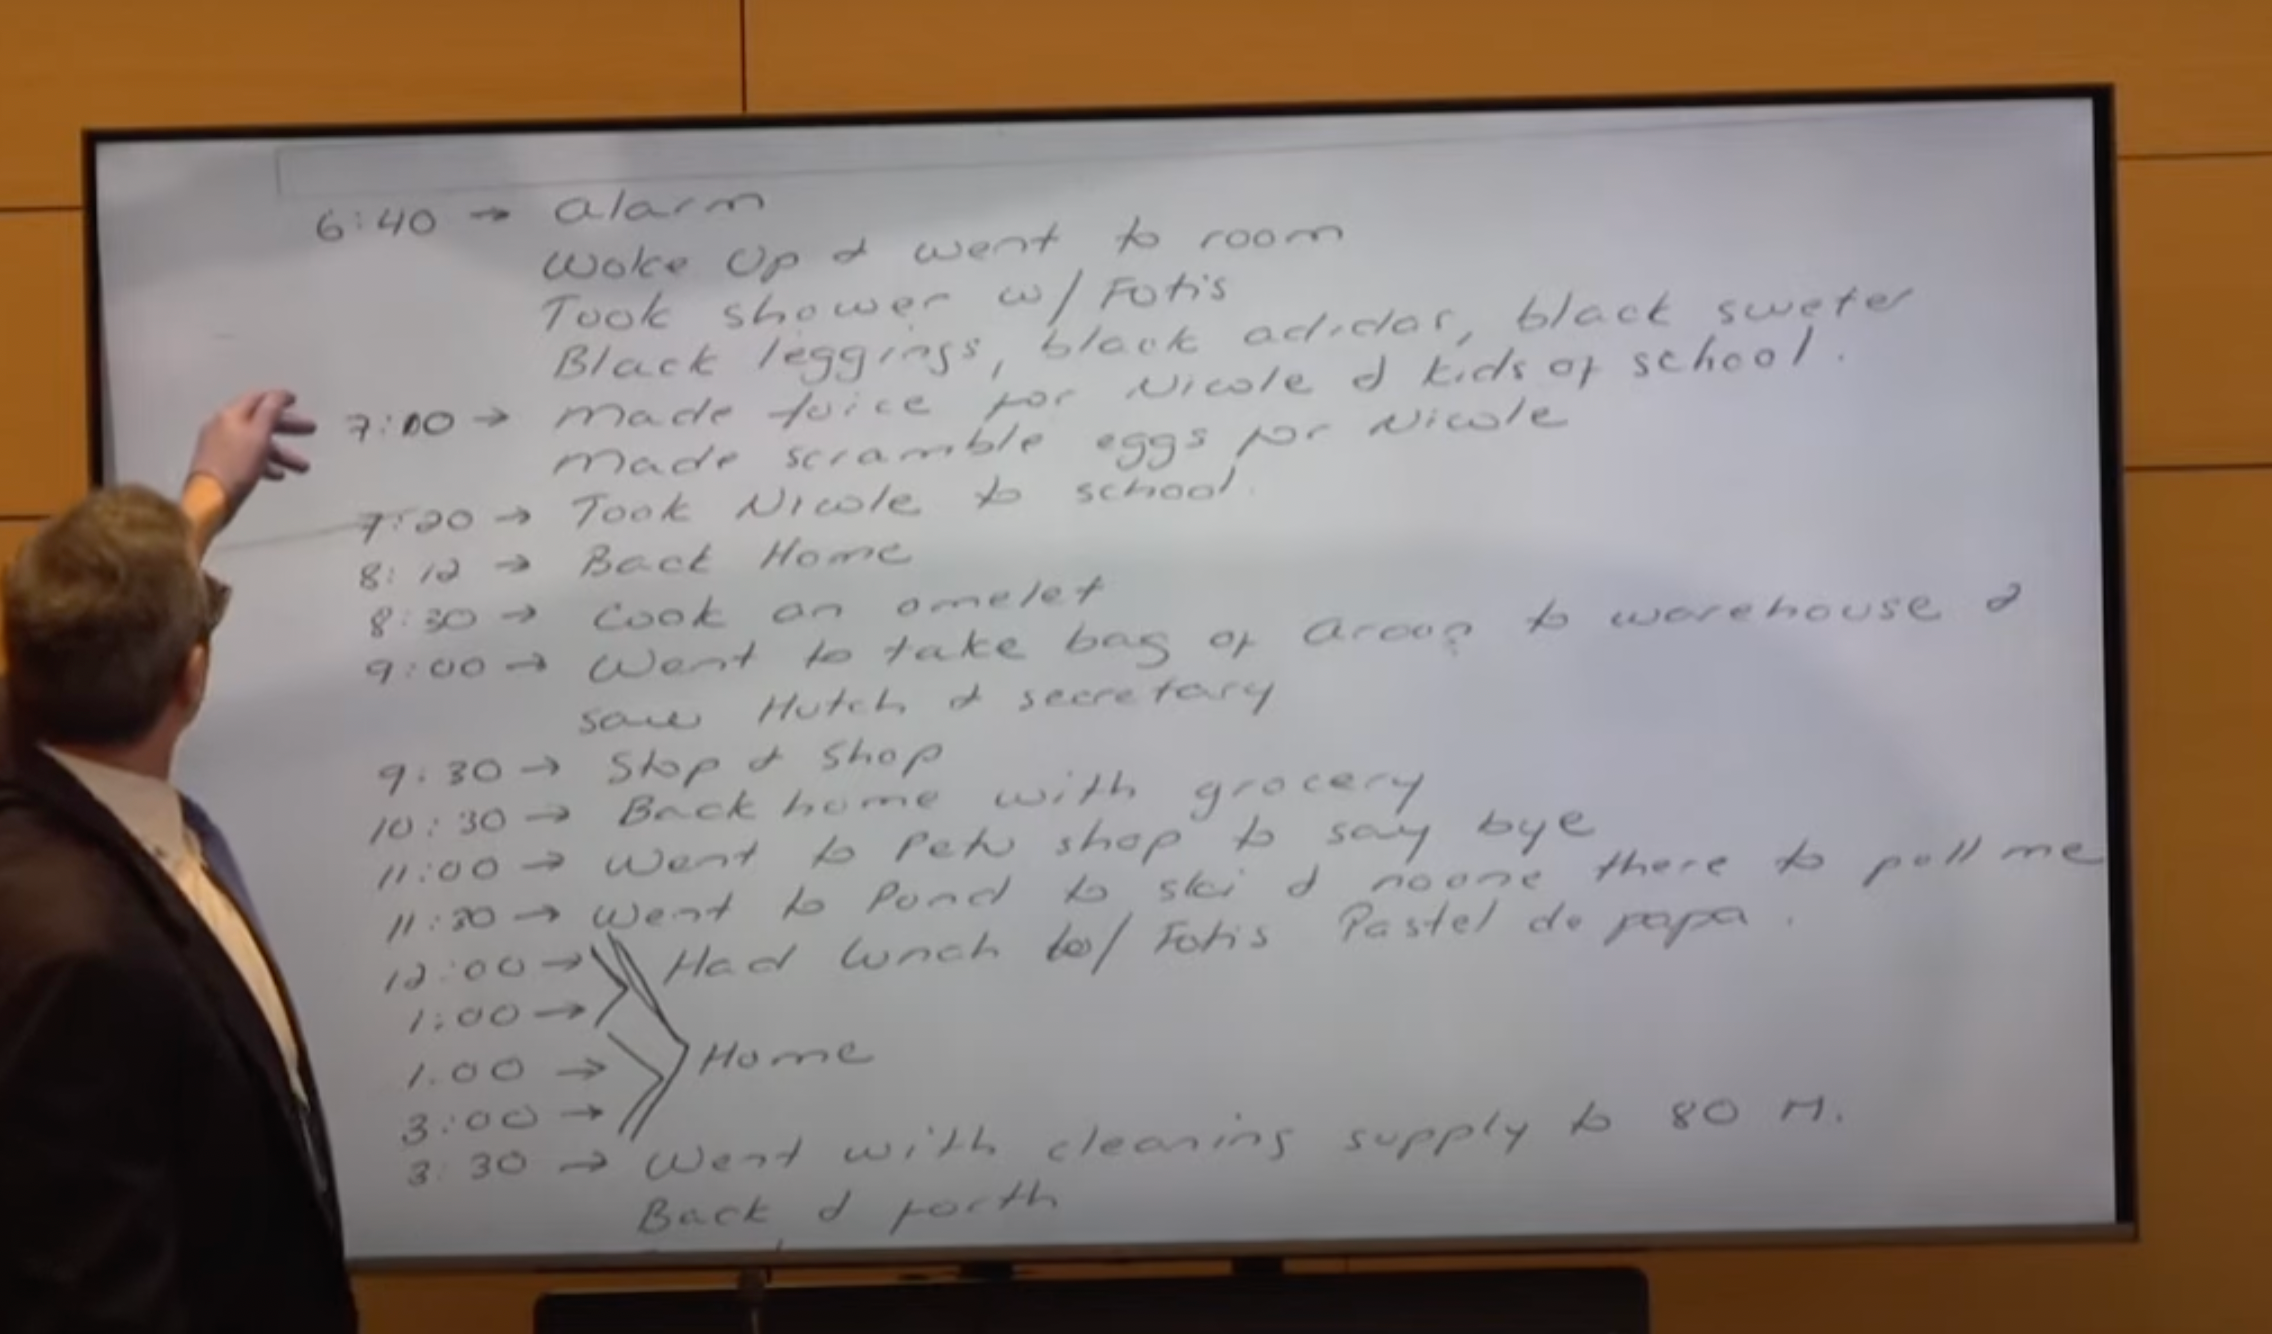 6:40 → alarm
Woke Up & went to room
Took shower w/ Fotis
Black leggings, black adidas, black sweter
7:00 → Made Juice for Nicole & kids of school.
Made scramble eggs for Nicole
7:20 → Took Nicole to school.
8:12 → Back Home
8:30 → Cook an omelet
9:00 → Went to take bag of to warehouse &
saw Hutch & secretary
9:30 → Stop & Shop
10:30 → Back home with grocery
11:00 → Went to Petu shop to say bye
11:30 → Went to Pond to ski & noone there to pull me
12:00 → Had lunch w/ Fotis Pastel de papa.
1:00 →
1:00 → Home
3:00 →
3:30 → Went with cleaning supply to 80 M.
Back & forth